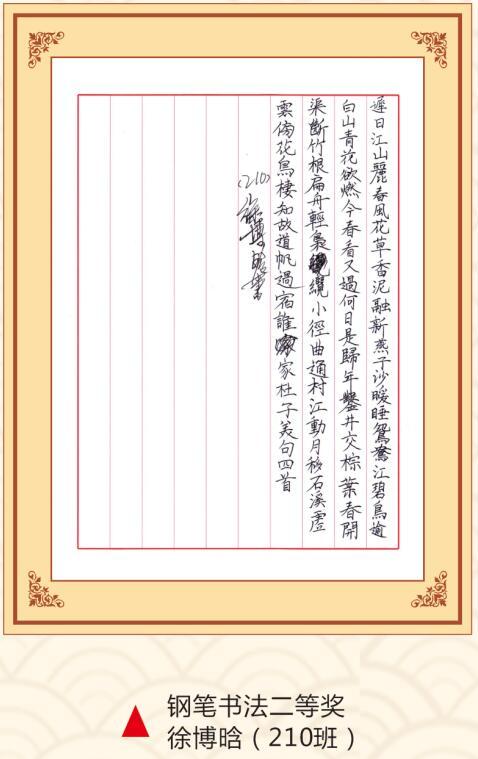 遲日江山麗春風花草香泥融新燕子沙暖睡鴛鴦江碧鳥逾
白山青花欲燃今春看又過何日是歸年鑿井交棕葉春開
渠斷竹根扁舟輕裊纜小徑曲通村江動月移石溪虛
雲傍花鳥棲知故道帆過宿誰家杜子美句四首
(210)徐博晗書
钢笔书法二等奖
徐博晗（210班）